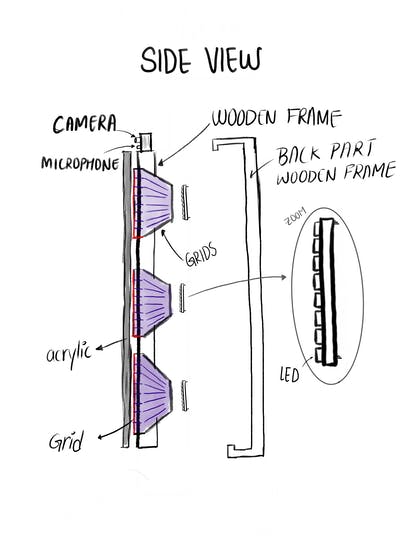 SIDE VIEW
CAMERA
MICROPHONE
WOODEN FRAME
BACK PART
WOODEN FRAME
ZOOM
GRIDS
acrylic
LED
Grid